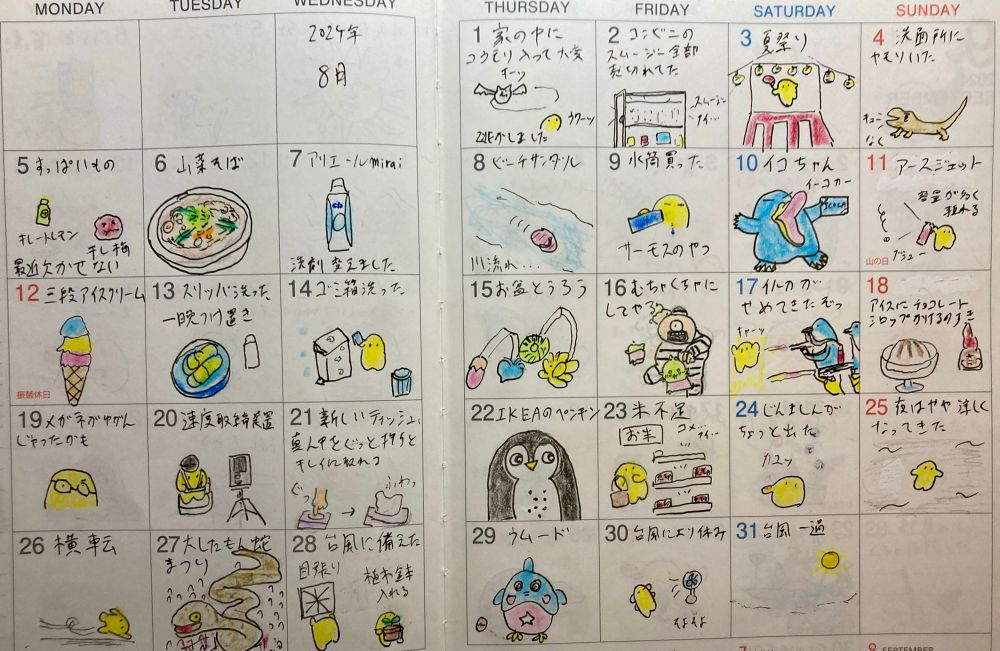 MONDAY
TUESDAY
WEDNESDAY
THURSDAY
FRIDAY
SATURDAY
SUNDAY
2024年
8月
1 家の中に
コウモリ入って大変
キーッ
ウワーッ
逃がしました
2 コンビニの
スムージー全部
売り切れてた
スムージー
ナイ…
3 夏祭り
4 洗面所に
ヤモリいた
キュー
なく
5 すっぱいもの
キレートレモン
干し梅
最近欠かせない
6 山菜そば
7 アリエールmirai
洗剤変えました
8 ビーチサンダル
川流れ...
9 水筒買った
サーモスのやつ
10 イコちゃん
イーコカー
ICOCA
11 アースジェット
山の日
12 三段アイスクリーム
振替休日
13 スリッパ洗った
一晩つけ置き
14 ゴミ箱洗った
15 お盆とうろう
16 むちゃくちゃに
してやる
17 イルカが
せめてきたぞっ
18
アイスにチョコレート
シロップかけるのすき
19 メガネがゆがん
じゃったかも
20 速度取締装置
21 新しいティッシュ、
真ん中をぐっと押すと
キレイに取れる
ぐっ
→
ふわっ
22 IKEAのペンギン
23 米不足
お米
コメ…
ナイ…
24 じんましんが
ちょっと出た
カユッ
25 夜はやや涼しく
なってきた
26 横転
27 大したもん蛇
まつり
28 台風に備えた
目張り
植木鉢
入れる
29 ラムード
30 台風により休み
そよそよ
31 台風一過
SEPTEMBER